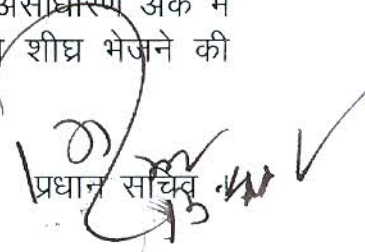 असाधारण अंक में
शीघ्र भेजने की
प्रधान सचिव